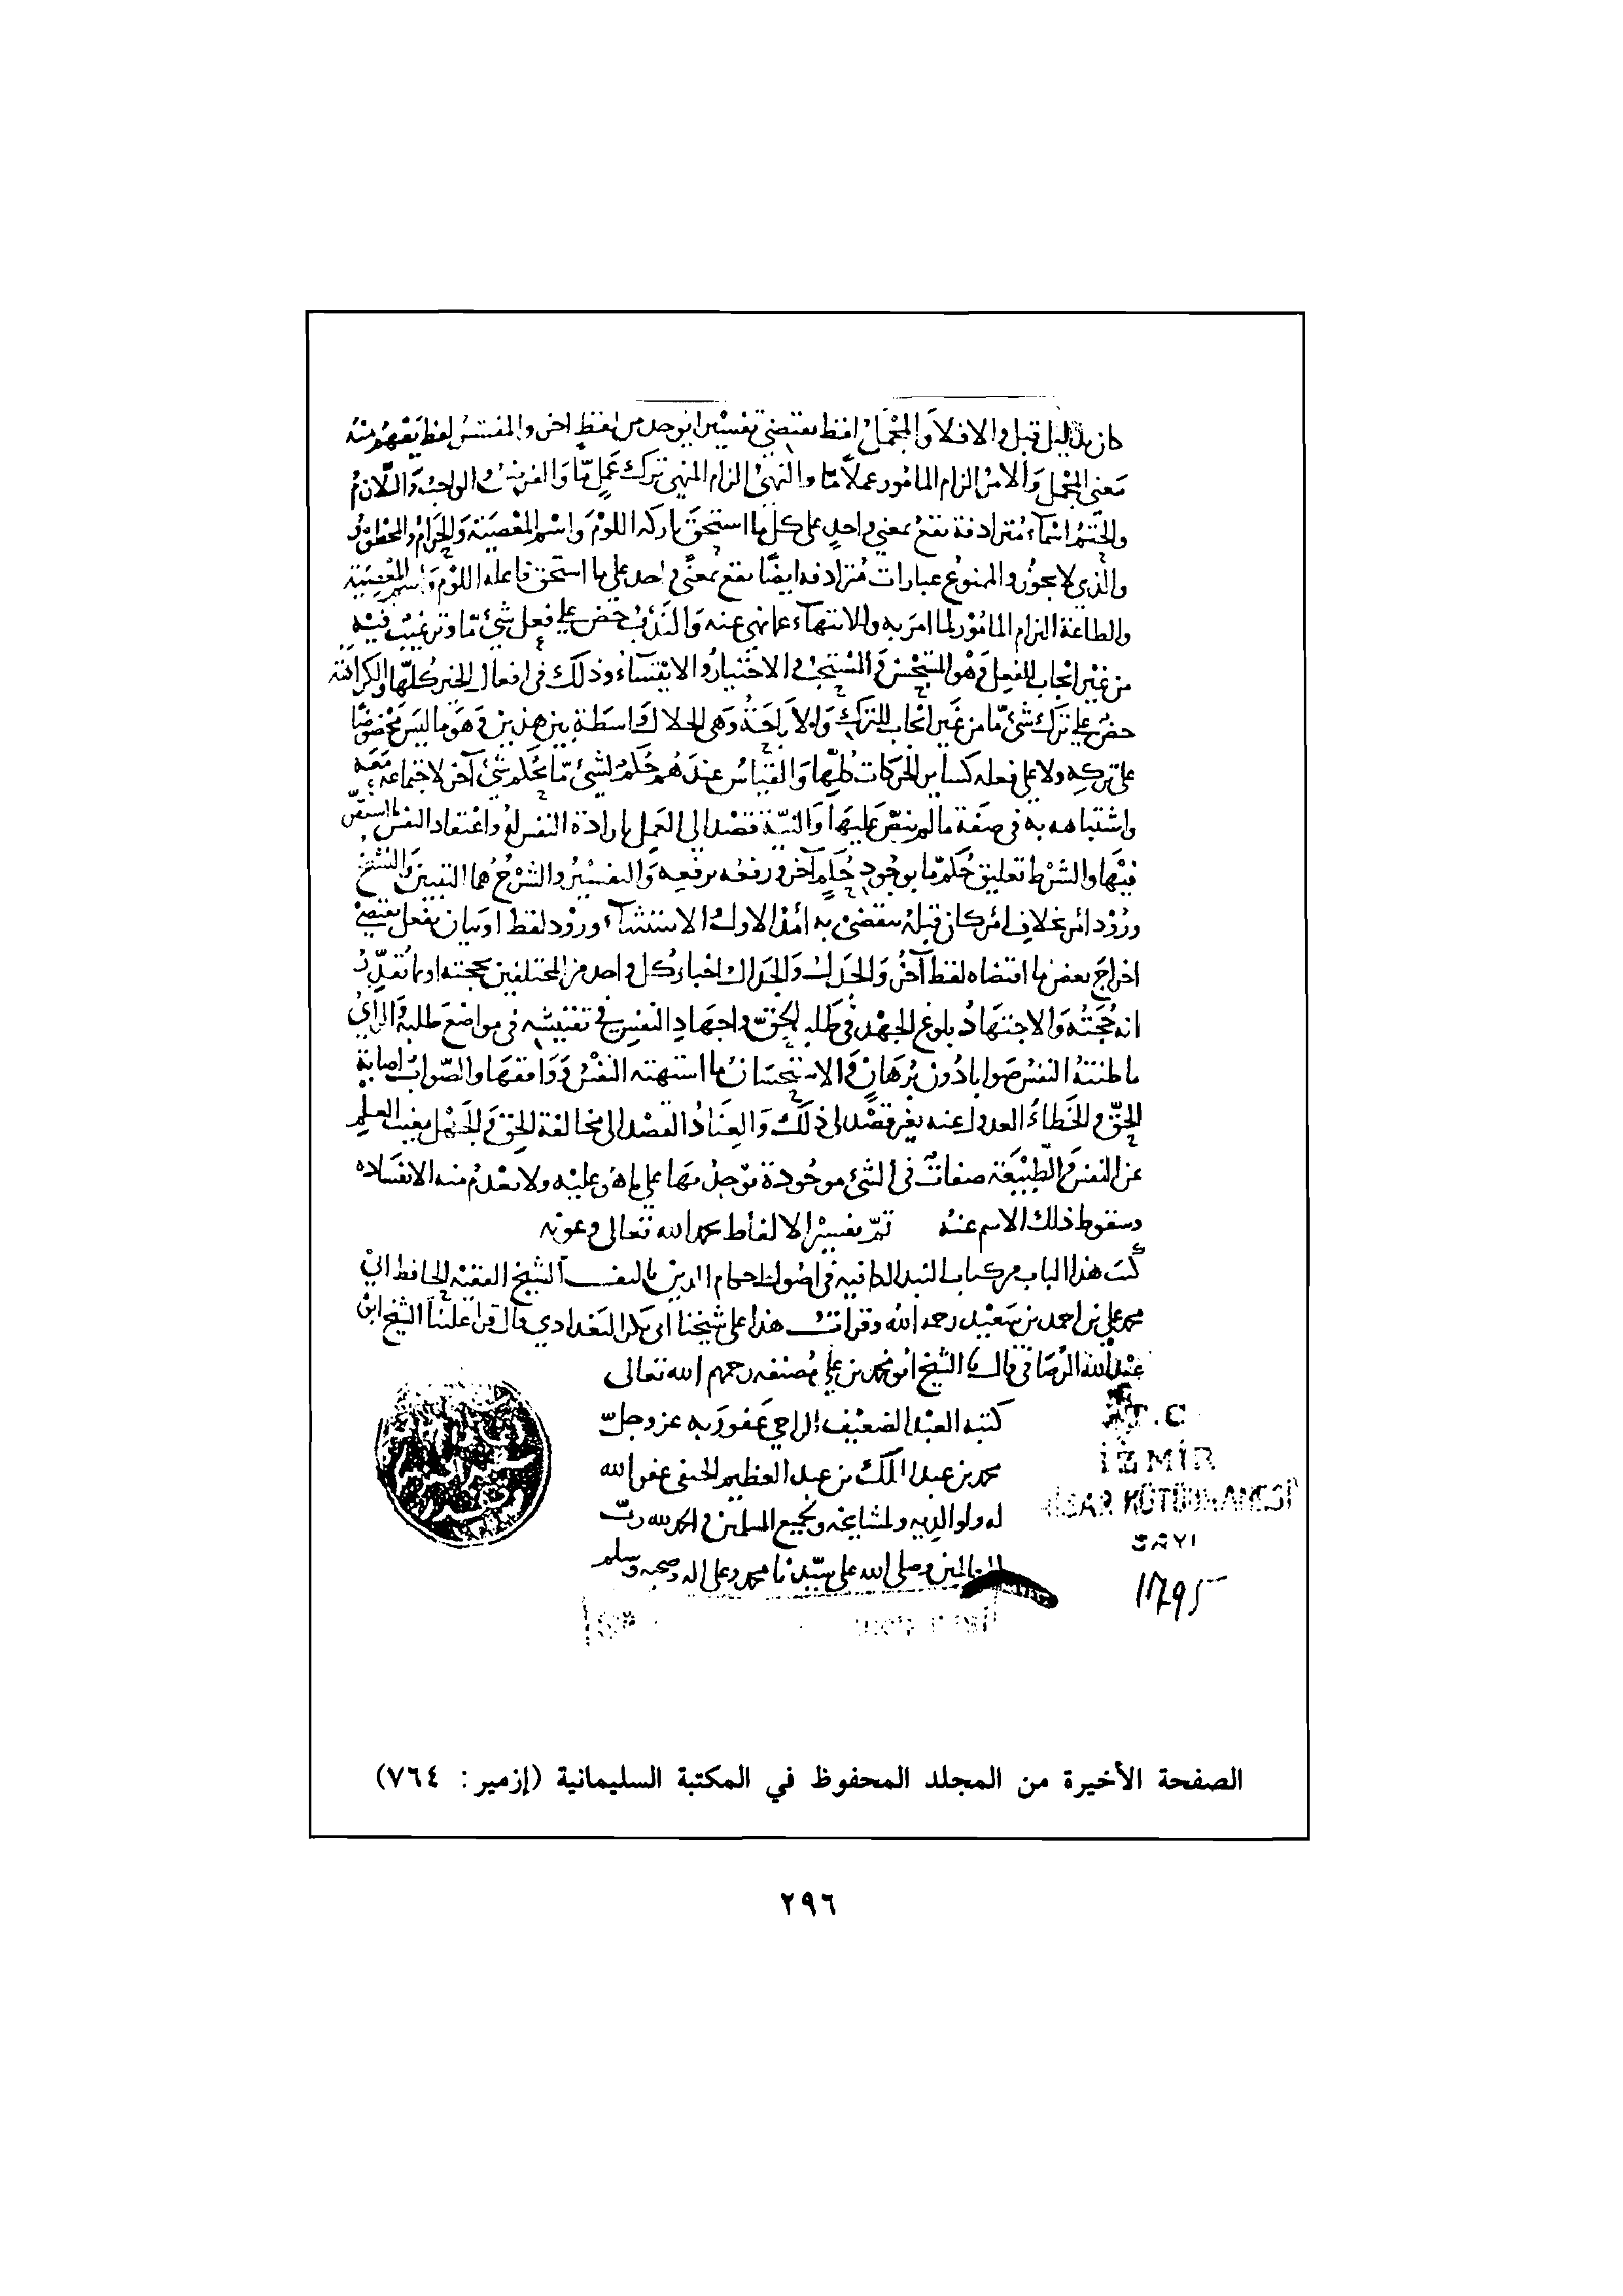 كان بدليل قبل والا فلا والمجمل لفظ يقتضي تفسيرا يوخد من لفظ اخر والمفسر لفظ يفهم منه
معنى المجمل والامر الزام المامور عملا ما والنهي الزام المنهي ترك عمل ما والفرض الواجب واللازم
والحتم اسماء مترادفة تقع بمعنى واحد على كل ما استحق تاركه اللوم واسم المعصية والحرام والمحظور
والذي لا يجوز والممنوع عبارات مترادفه ايضا تقع بمعنى واحد على ما استحق فاعله اللوم واسم المعصية
والطاعة التزام المامور لما امر به والانتهاء عما نهي عنه والندب حض على فعل شئ ما وترغيب فيه
من غير ايجاب للفعل وهو المستحسن والمستحب والاختيار والايتساء وذلك في افعال الخير كلها والكراهة
حض على ترك شئ ما من غير ايجاب للترك والاباحة وهي الحلال واسطة بين هذين وهو ما ليس محضوضا
على تركه ولا على فعله كساير الحركات كلها والقياس عندهم حكم لشئ ما بحكم شئ آخر لاجتماعه معه
واشتباهه به في صفة ما لم ينص عليها والنية قصد الى العمل بارادة النفس له واعتقاد النفس ما استقر
فيها والشرط تعليق حكم ما بوجود حكم آخر ورفعه برفعه والتفسير والشرح هما التبيين والنسخ
ورود امر بخلاف امر كان قبله ينقضي به امد الاول والاستثناء ورود لفظ او بيان بفعل يقتضي
اخراج بعض ما اقتضاه لفظ آخر والجدل والجدال اخبار كل واحد من المختلفين بحجته او بما يقدر
انه حجته والاجتهاد بلوغ الجهد في طلب الحق واجهاد النفس في تفتيشه في مواضع طلبه والراي
ما ظنته النفس صوابا دون برهان والاستحسان ما اشتهته النفس ووافقها والصواب اصابة
الحق والخطاء العدول عنه بغير قصد الى ذلك والعناد القصد الى مخالفة الحق والجهل مغيب العلم
عن النفس والطبيعة صفات في الشئ موجودة توجد بها على ما هو عليه ولا تعدم منه الا بفساده
وسقوط ذلك الاسم عنه تم تفسير الالفاظ بحمد الله تعالى وعونه
كتبت هذا الباب من كتاب النبد الكافيه في اصول احكام الدين تاليف الشيخ الفقيه الحافظ ابي
محمد علي بن احمد بن سعيد رحمه الله وقرات هذا على شيخنا ابي بكر البغدادي قال قرا علينا الشيخ ابن
عبد الله قال نا الشيخ ابو محمد بن علي مصنفه رحمهم الله تعالى
كتبه العبد الضعيف الراجي عفو ربه عز وجل
محمد بن عبد الملك بن عبد العظيم الحنفي عفو الله
له ولوالديه ولمشايخه ولجميع المسلمين والحمد لله رب
العالمين وصلى الله على سيدنا محمد وعلى اله وصحبه وسلم
T.C
İZMİR
HİSAR KÜTÜPHANESİ
SAYI
الصفحة الأخيرة من المجلد المحفوظ في المكتبة السليمانية (إزمير: ٧٦٤)
٢٩٦